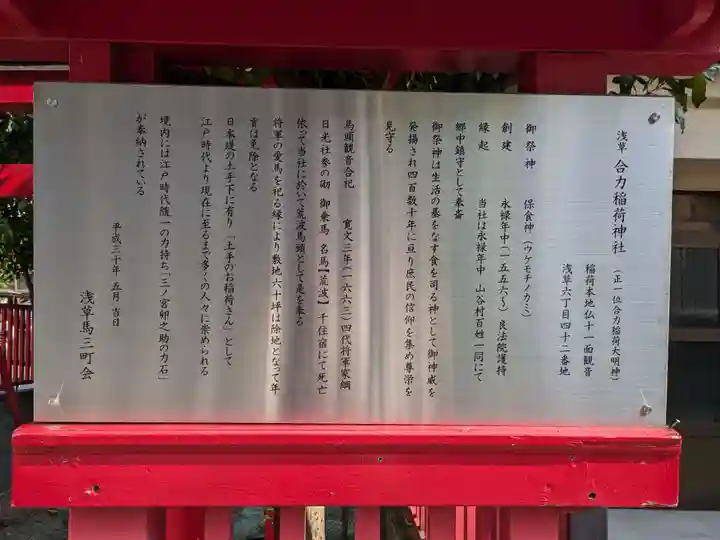 浅草 合力稲荷神社 (正一位合力稲荷大明神)
稲荷本地仏十一面観音
浅草六丁目四十二番地
御祭神 保食神(ウケモチノカミ)
創建 永禄年中(一五五六〜)良法院護持
縁起 当社は永禄年中 山谷村百姓一同にて
郷中鎮守として奉斎
御祭神は生活の基をなす食を司る神として御神威を
発揚され四百数十年に亘り庶民の信仰を集め尊崇を
見守る
馬頭観音合祀 寛文三年(一六六三)四代将軍家綱
日光社参の砌 御乗馬 名馬【荒波】千住宿にて死亡
依って当社に於いて荒波馬頭として是を奉る
将軍の愛馬を祀る縁により敷地六十坪は除地となって年
貢は免除となる
日本堤の土手下に有り「土手のお稲荷さん」として
江戸時代より現在に至るまで多くの人々に崇められる
境内には江戸時代随一の力持ち「三ノ宮卯之助の力石」
が奉納されている
平成三十年 五月 吉日
浅草馬三町会